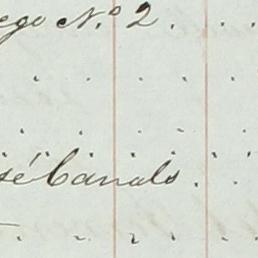 ego N.º 2 . . .
sé Canals . . .